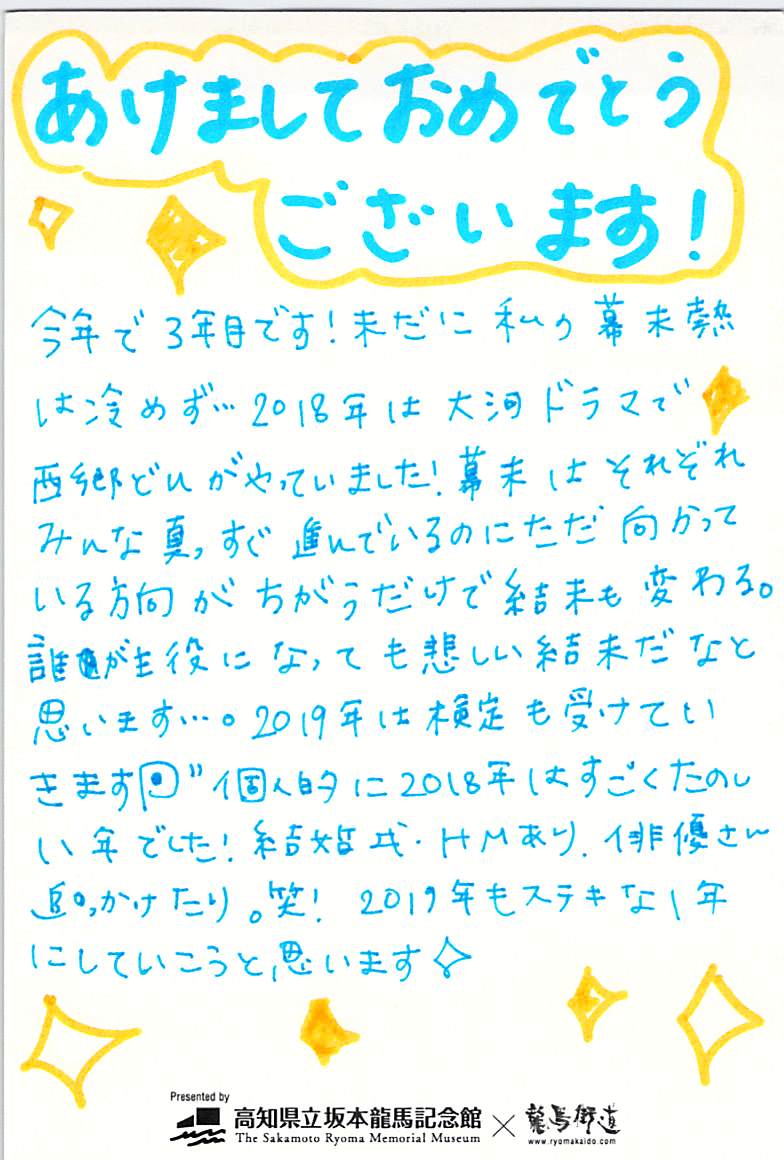 あけましておめでとう
ございます!
今年で3年目です!未だに私の幕末熱
は冷めず…2018年は大河ドラマで
西郷どんがやっていました!幕末はそれぞれ
みんな真っすぐ進んでいるのにただ向かって
いる方向がちがうだけで結末も変わる。
誰が主役になっても悲しい結末だなと
思います…。2019年は検定も受けてい
きます"個人的に2018年はすごくたのし
い年でした!結婚式・HMあり、俳優さん
追っかけたり。笑! 2019年もステキな1年
にしていこうと思います
Presented by
高知県立坂本龍馬記念館 × 龍馬街道
The Sakamoto Ryoma Memorial Museum www.ryomakaido.com